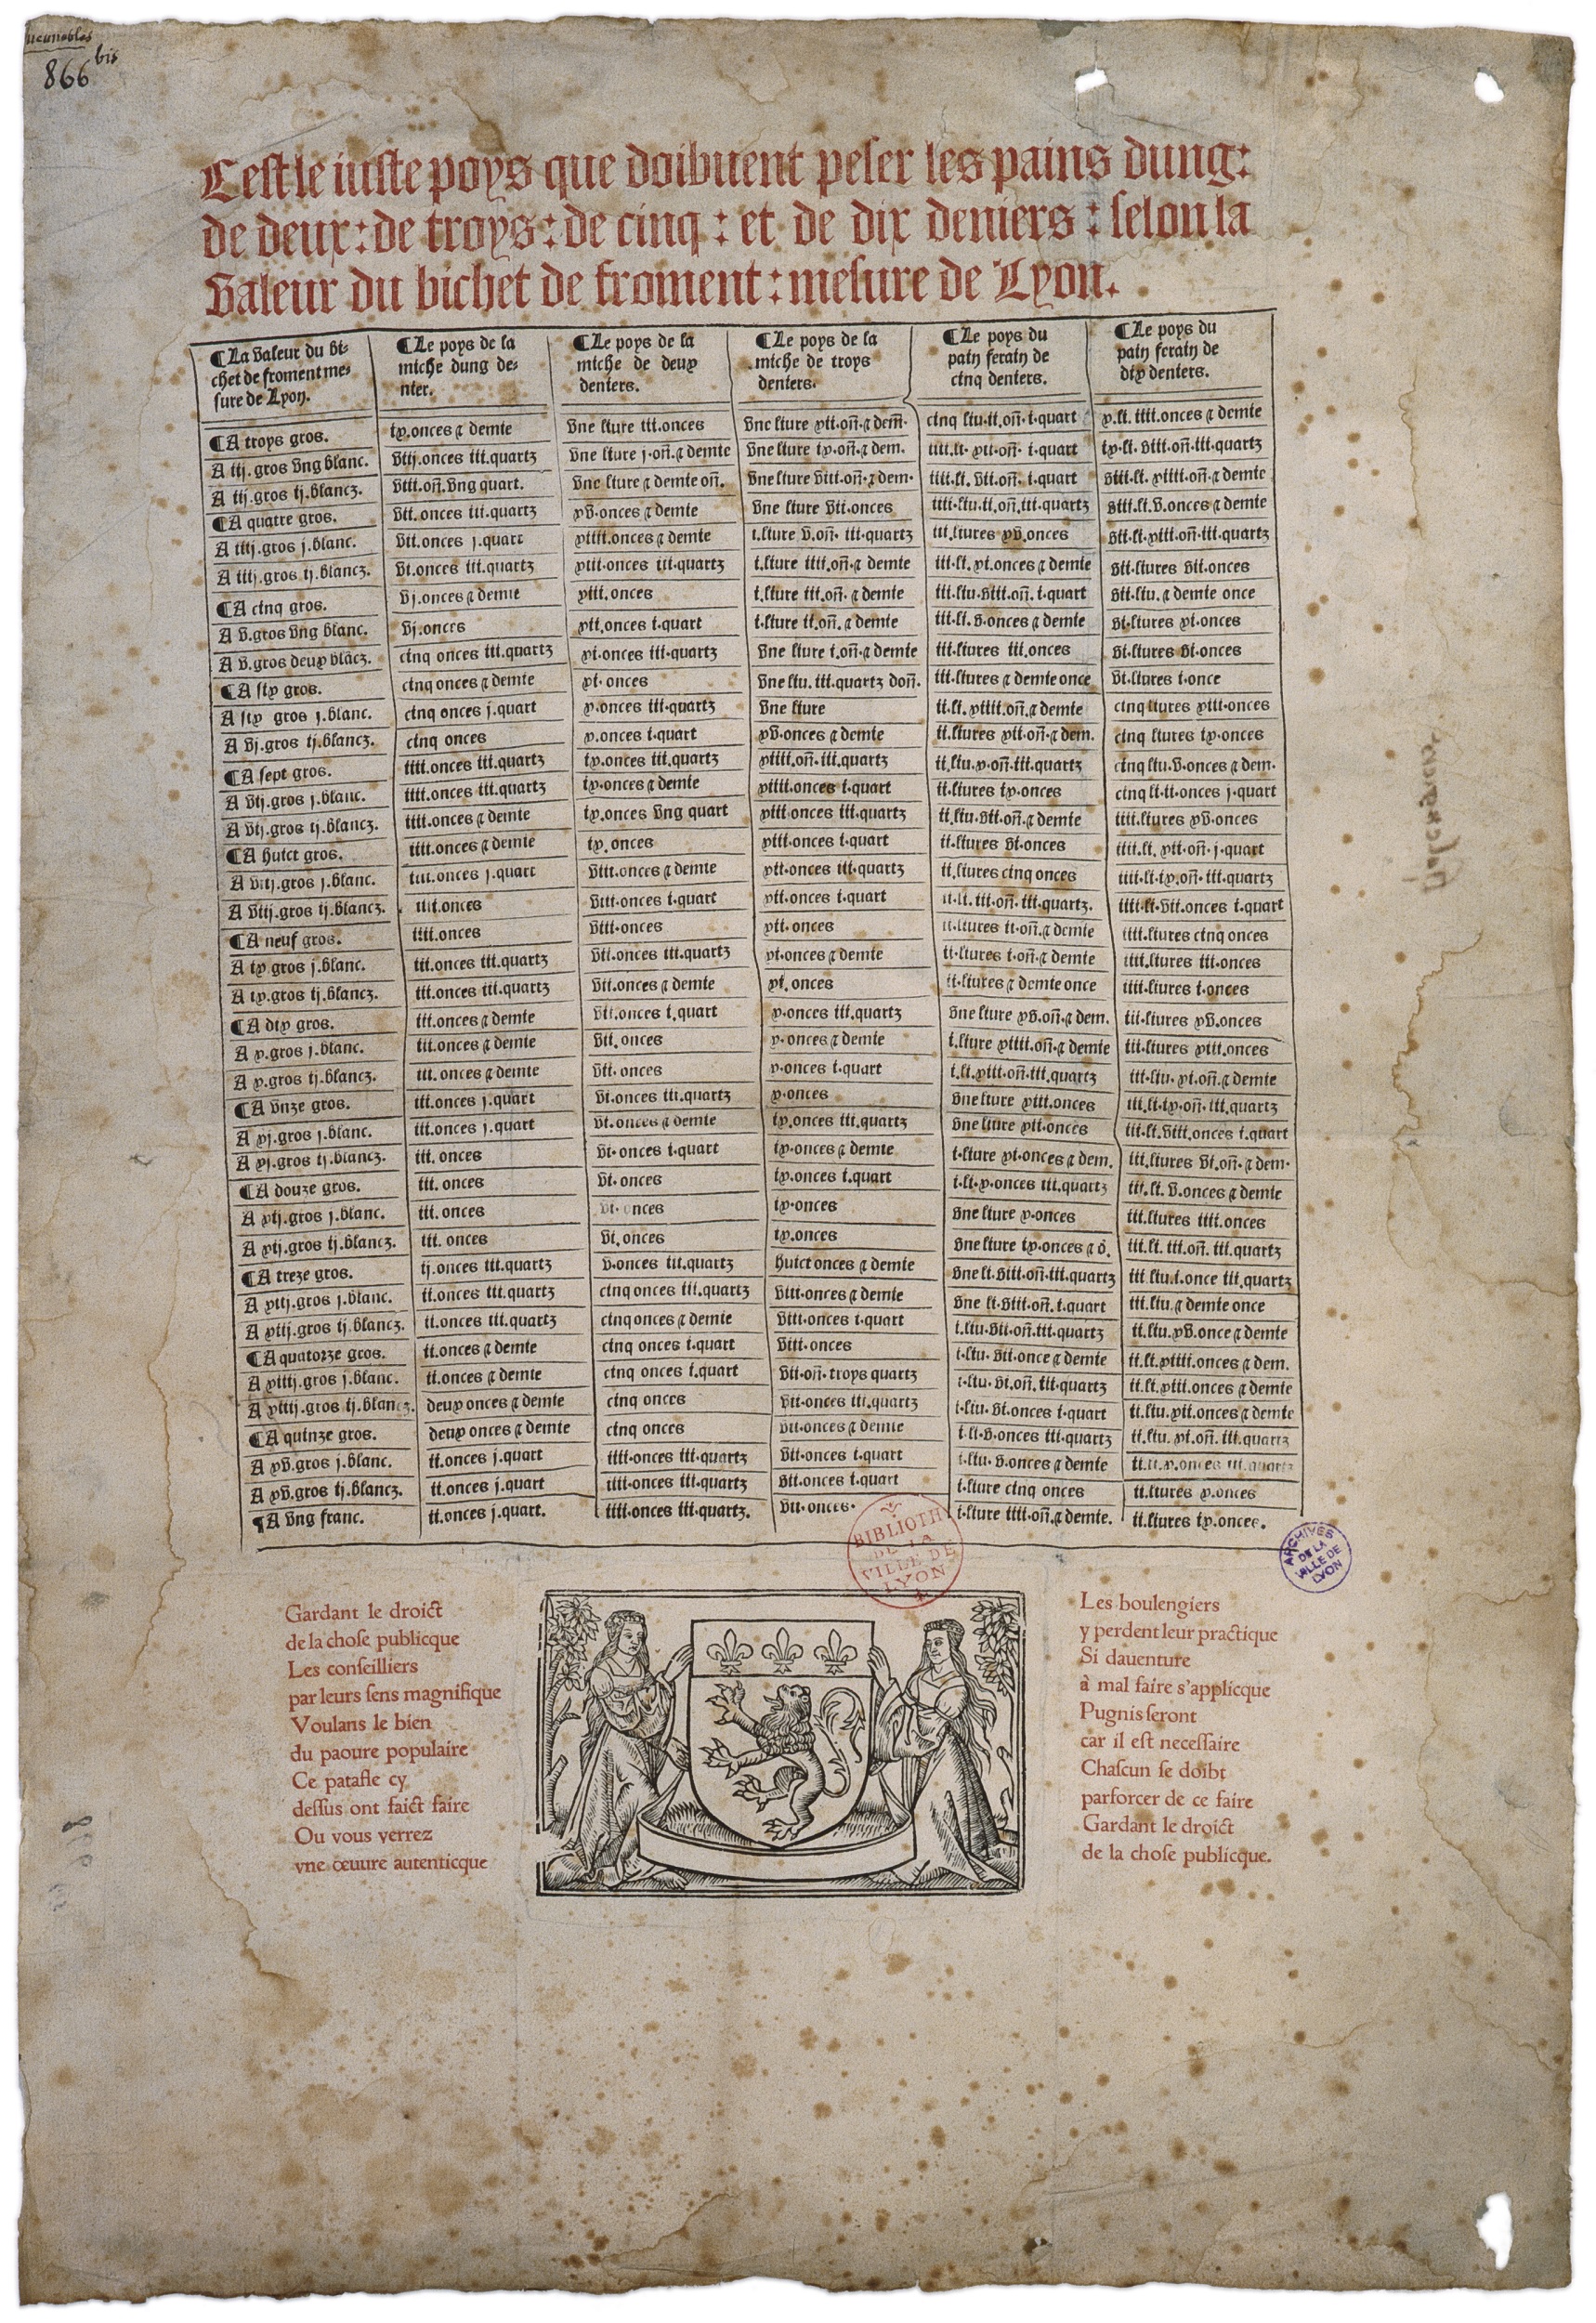 incunables
866 bis
C est le iuste poys que doibuent peser les pains dung:
de deux: de troys: de cinq: et de dix deniers: selon la
valeur du bichet de froment: mesure de Lyon.
¶La valeur du bi=
chet de froment me=
sure de Lyon.
¶Le poys de la
miche dung de=
nier.
¶Le poys de la
miche de deux
deniers.
¶Le poys de la
miche de troys
deniers.
¶Le poys du
pain ferain de
cinq deniers.
¶Le poys du
pain ferain de
dix deniers.
¶A troys gros. ix.onces & demie vne liure iii.onces vne liure xii.oñ.& dem̃. cinq liu.ii.oñ.i.quart x.li. iiii.onces & demie
A iij.gros vng blanc. viij.onces iii.quartz vne liure j.oñ.& demie vne liure ix.oñ.& dem. iiii.li. xii.oñ. i.quart ix.li. viii.oñ.iii.quartz
A iij.gros ij.blancz. viii.oñ.vng quart. vne liure & demie oñ. vne liure viii.oñ.& dem. iiii.li. vii.oñ. i.quart viii.li. xiiii.oñ.& demie
¶A quatre gros. vii.onces iii.quartz xv.onces & demie vne liure vii.onces iiii.liu.ii.oñ.iii.quartz viii.li.v.onces & demie
A iiij.gros j.blanc. vii.onces j.quart xiiii.onces & demie i.liure v.oñ. iii.quartz iii.liures xv.onces vii.li.xiii.oñ.iii.quartz
A iiij.gros ij.blancz. vi.onces iii.quartz xiii.onces iii.quartz i.liure iiii.oñ.& demie iii.li. xi.onces & demie vii.liures vii.onces
¶A cinq gros. vj.onces & demie xiii.onces i.liure iii.oñ. & demie iii.liu.viii.oñ. i.quart vii.liu. & demie once
A v.gros vng blanc. vj.onces xii.onces i.quart i.liure ii.oñ. & demie iii.li. v.onces & demie vi.liures xi.onces
A v.gros deux blãcz. cinq onces iii.quartz xi.onces iii.quartz vne liure i.oñ.& demie iii.liures iii.onces vi.liures vi.onces
¶A six gros. cinq onces & demie xi. onces vne liu. iii.quartz doñ. iii.liures & demie once vi.liures i.once
A six gros j.blanc. cinq onces j.quart x.onces iii.quartz vne liure ii.li. xiiii.oñ.& demie cinq liures xiii.onces
A vj.gros ij.blancz. cinq onces x.onces i.quart xv.onces & demie ii.liures xii.oñ.& dem. cinq liures ix.onces
¶A sept gros. iiii.onces iii.quartz ix.onces iii.quartz xiiii.oñ.iii.quartz ii.liu.x.oñ.iii.quartz cinq liu.v.onces & dem.
A vij.gros j.blanc. iiii.onces iii.quartz ix.onces & demie xiiii.onces i.quart ii.liures ix.onces cinq li.ii.onces j.quart
A vij.gros ij.blancz. iiii.onces & demie ix.onces vng quart xiii.onces iii.quartz ii.liu.vii.oñ.& demie iiii.liures xv.onces
¶A huict gros. iiii.onces & demie ix.onces xiii.onces i.quart ii.liures vi.onces iiii.li. xii.oñ.j.quart
A viij.gros j.blanc. iiii.onces j.quart viii.onces & demie xii.onces iii.quartz ii.liures cinq onces iiii.li.ix.oñ.iii.quartz
A viij.gros ij.blancz. iiii.onces viii.onces i.quart xii.onces i.quart ii.li. iii.oñ. iii.quartz. iiii.li.vii.onces i.quart
¶A neuf gros. iiii.onces viii.onces xii.onces ii.liures ii.oñ.& demie iiii.liures cinq onces
A ix.gros j.blanc. iii.onces iii.quartz vii.onces iii.quartz xi.onces & demie ii.liures i.oñ.& demie iiii.liures iii.onces
A ix.gros ij.blancz. iii.onces iii.quartz vii.onces & demie xi.onces ii.liures & demie once iiii.liures i.onces
¶A dix gros. iii.onces & demie vii.onces i.quart x.onces iii.quartz vne liure xv.oñ.& dem. iii.liures xv.onces
A x.gros j.blanc. iii.onces & demie vii.onces x.onces & demie i.liure xiiii.oñ.& demie iii.liures xiii.onces
A x.gros ij.blancz. iii.onces & demie vii.onces x.onces i.quart i.li.xiii.oñ.iii.quartz iii.liu. xi.oñ.& demie
¶A vnze gros. iii.onces j.quart vi.onces iii.quartz x.onces vne liure xiii.onces iii.li.ix.oñ. iii.quartz
A xj.gros j.blanc. iii.onces j.quart vi.onces & demie ix.onces iii.quartz vne liure xii.onces iii.li.viii.onces i.quart
A xj.gros ij.blancz. iii.onces vi.onces i.quart ix.onces & demie i.liure xi.onces & dem. iii.liures vi.oñ.& dem.
¶A douze gros. iii.onces vi.onces ix.onces i.quart i.li.x.onces iii.quartz iii.li. v.onces & demie
A xij.gros j.blanc. iii.onces vi.onces ix.onces vne liure x.onces iii.liures iiii.onces
A xij.gros ij.blancz. iii.onces vi.onces ix.onces vne liure ix.onces & d̃. iii.li. iii.oñ. iii.quartz
¶A treze gros. ij.onces iii.quartz v.onces iii.quartz huict onces & demie vne li.viii.oñ.iii.quartz iii.liu.i.once iii.quartz
A xiij.gros j.blanc. ii.onces iii.quartz cinq onces iii.quartz viii.onces & demie vne li.viii.oñ.i.quart iii.liu.& demie once
A xiij.gros ij.blancz. ii.onces iii.quartz cinq onces & demie viii.onces i.quart i.liu.vii.oñ.iii.quartz ii.liu.xv.once & demie
¶A quatorze gros. ii.onces & demie cinq onces i.quart viii.onces i.liu. vii.once & demie ii.li.xiiii.onces & dem.
A xiiij.gros j.blanc. ii.onces & demie cinq onces i.quart vii.oñ. troys quartz i.liu. vi.oñ. iii.quartz ii.li.xiii.onces & demie
A xiiij.gros ij.blancz. deux onces & demie cinq onces vii.onces iii.quartz i.liu. vi.onces i.quart ii.liu.xii.onces & demie
¶A quinze gros. deux onces & demie cinq onces vii.onces & demie i.li.v.onces iii.quartz ii.liu. xi.oñ. iii.quartz
A xv.gros j.blanc. ii.onces j.quart iiii.onces iii.quartz vii.onces i.quart i.liu. v.onces & demie ii.li.x.onces iii.quartz
A xv.gros ij.blancz. ii.onces j.quart iiii.onces iii.quartz vii.onces i.quart i.liure cinq onces ii.liures x.onces
¶A vng franc. ii.onces j.quart. iiii.onces iii.quartz. vii.onces. i.liure iiii.oñ.& demie. ii.liures ix.onces.
BIBLIOTH
DE LA
VILLE DE
LYON
ARCHIVES
DE LA
VILLE DE
LYON
Gardant le droict
de la chose publicque
Les conseilliers
par leurs sens magnifique
Voulans le bien
du paoure populaire
Ce patafle cy
dessus ont faict faire
Ou vous verrez
vne œuure autenticque
Les boulengiers
y perdent leur practique
Si dauenture
à mal faire s'applicque
Pugnis seront
car il est necessaire
Chascun se doibt
parforcer de ce faire
Gardant le droict
de la chose publicque.